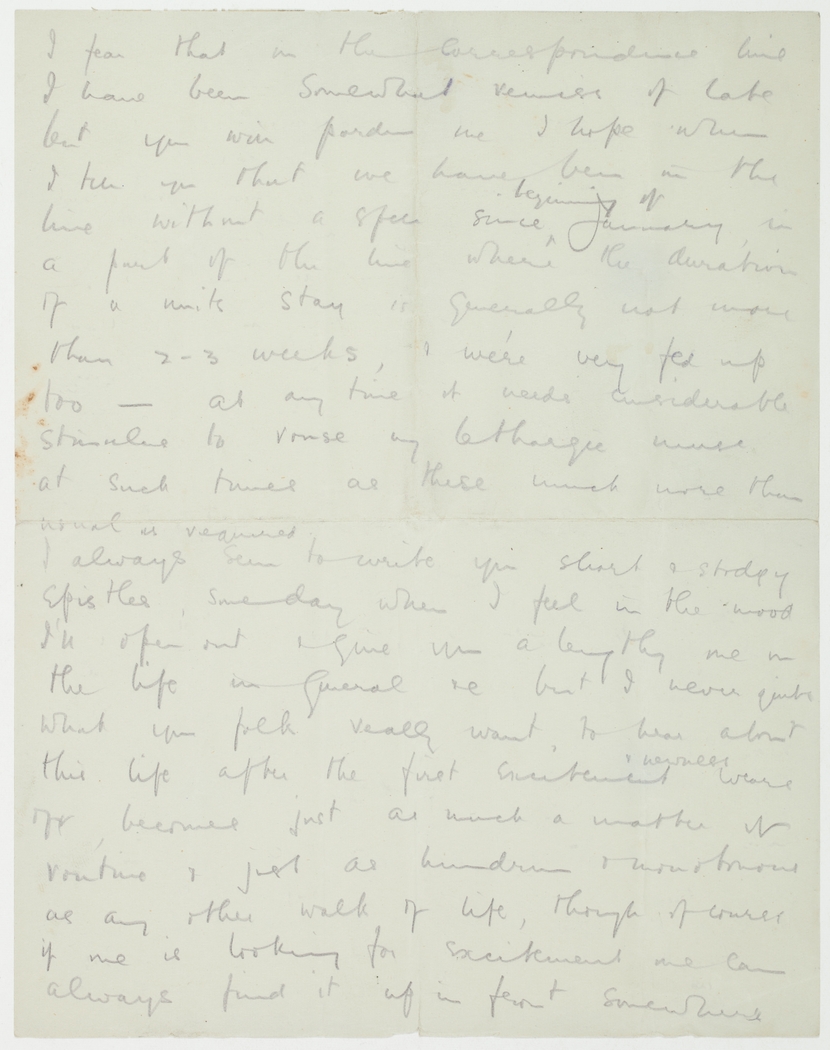 I fear that in the correspondence line
I have been somewhat remiss of late
but you will pardon me I hope when
I tell you that we have been in the
beginning of
line without a spell since January, in
a part of the line where the duration
of a units stay is generally not more
than 2-3 weeks, & we're very fed up
too — at any time it needs considerable
stimulus to rouse my lethargic muse
at such times as these much more than
usual is required
I always seem to write you short & stodgy
epistles, someday when I feel in the mood
I'll open out & give you a lengthy one on
the life in general &c but I never quite
what you folk really want to hear about
& newness
this life after the first excitement wears
off, becomes just as much a matter of
routine & just as humdrum & monotonous
as any other walk of life, though of course
if one is looking for excitement one can
always find it up in front somewhere